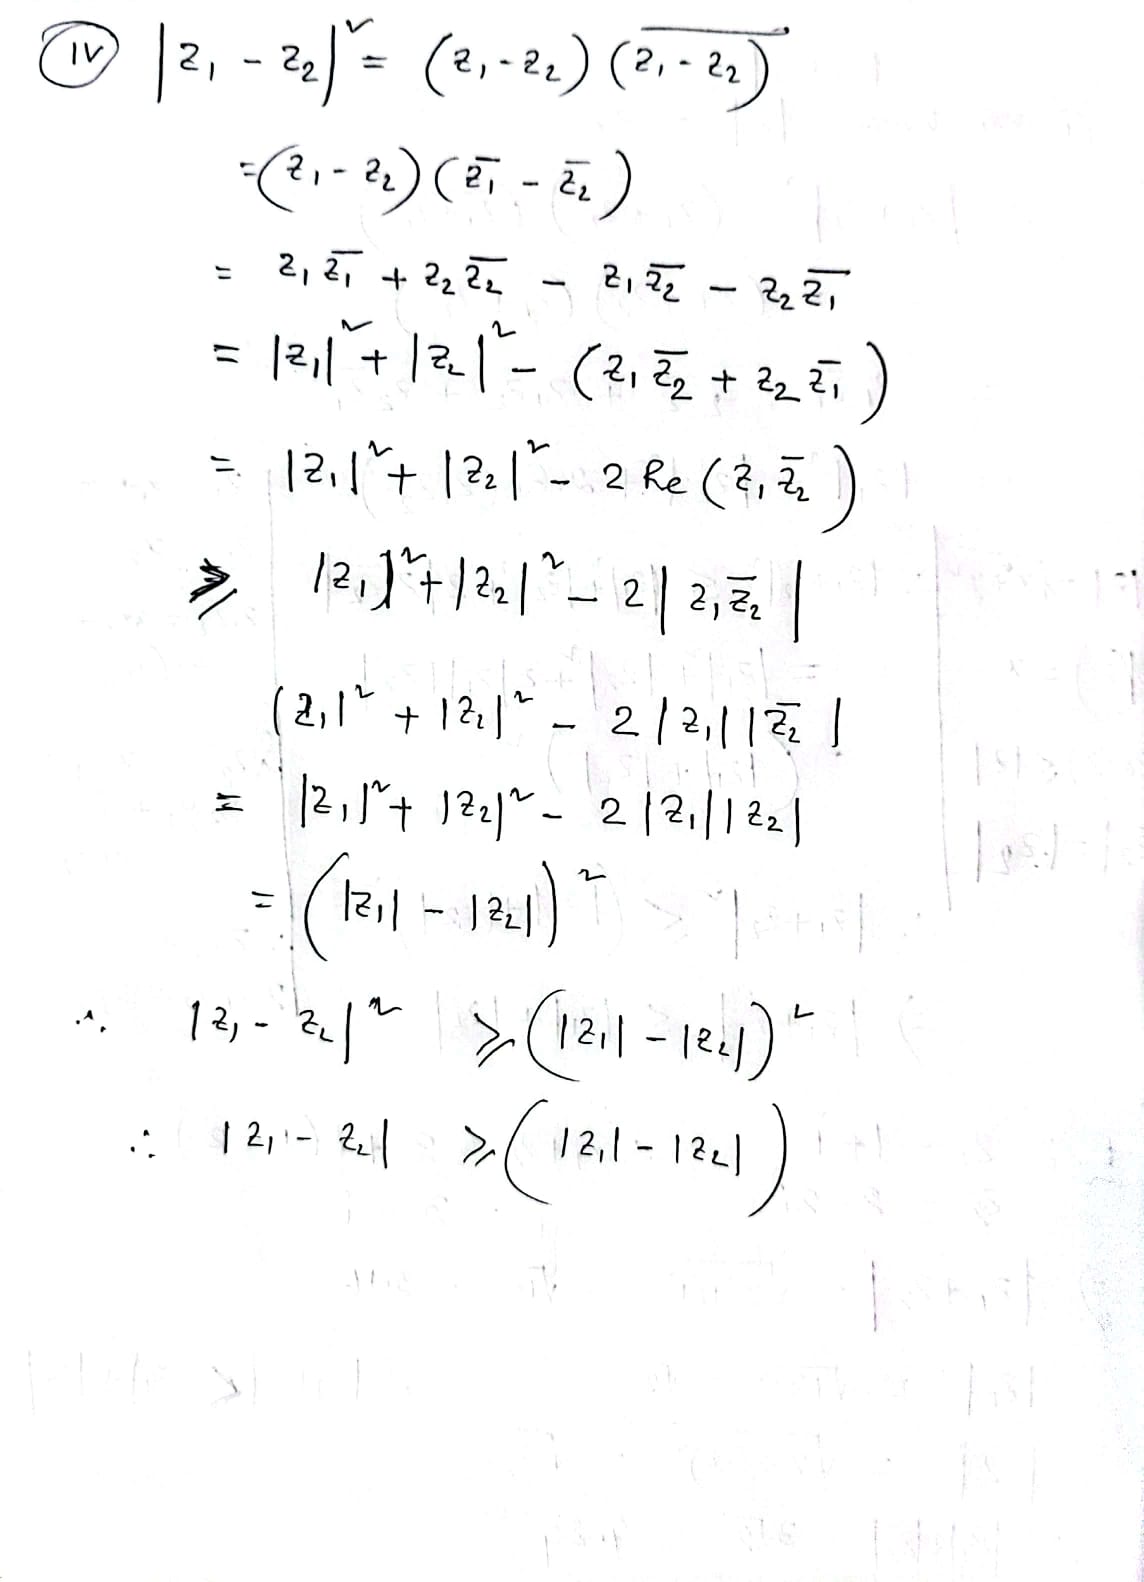 (iv) |z₁ - z₂|² = (z₁ - z₂) (\overline{z₁ - z₂})
= (z₁ - z₂) (z̄₁ - z̄₂)
= z₁ z̄₁ + z₂ z̄₂ - z₁ z̄₂ - z₂ z̄₁
= |z₁|² + |z₂|² - (z₁ z̄₂ + z₂ z̄₁)
= |z₁|² + |z₂|² - 2 Re (z₁ z̄₂)
⩾ |z₁|² + |z₂|² - 2 |z₁ z̄₂|
|z₁|² + |z₂|² - 2 |z₁| |z̄₂|
= |z₁|² + |z₂|² - 2 |z₁| |z₂|
= (|z₁| - |z₂|)²
∴ |z₁ - z₂|² ⩾ (|z₁| - |z₂|)²
∴ |z₁ - z₂| ⩾ (|z₁| - |z₂|)